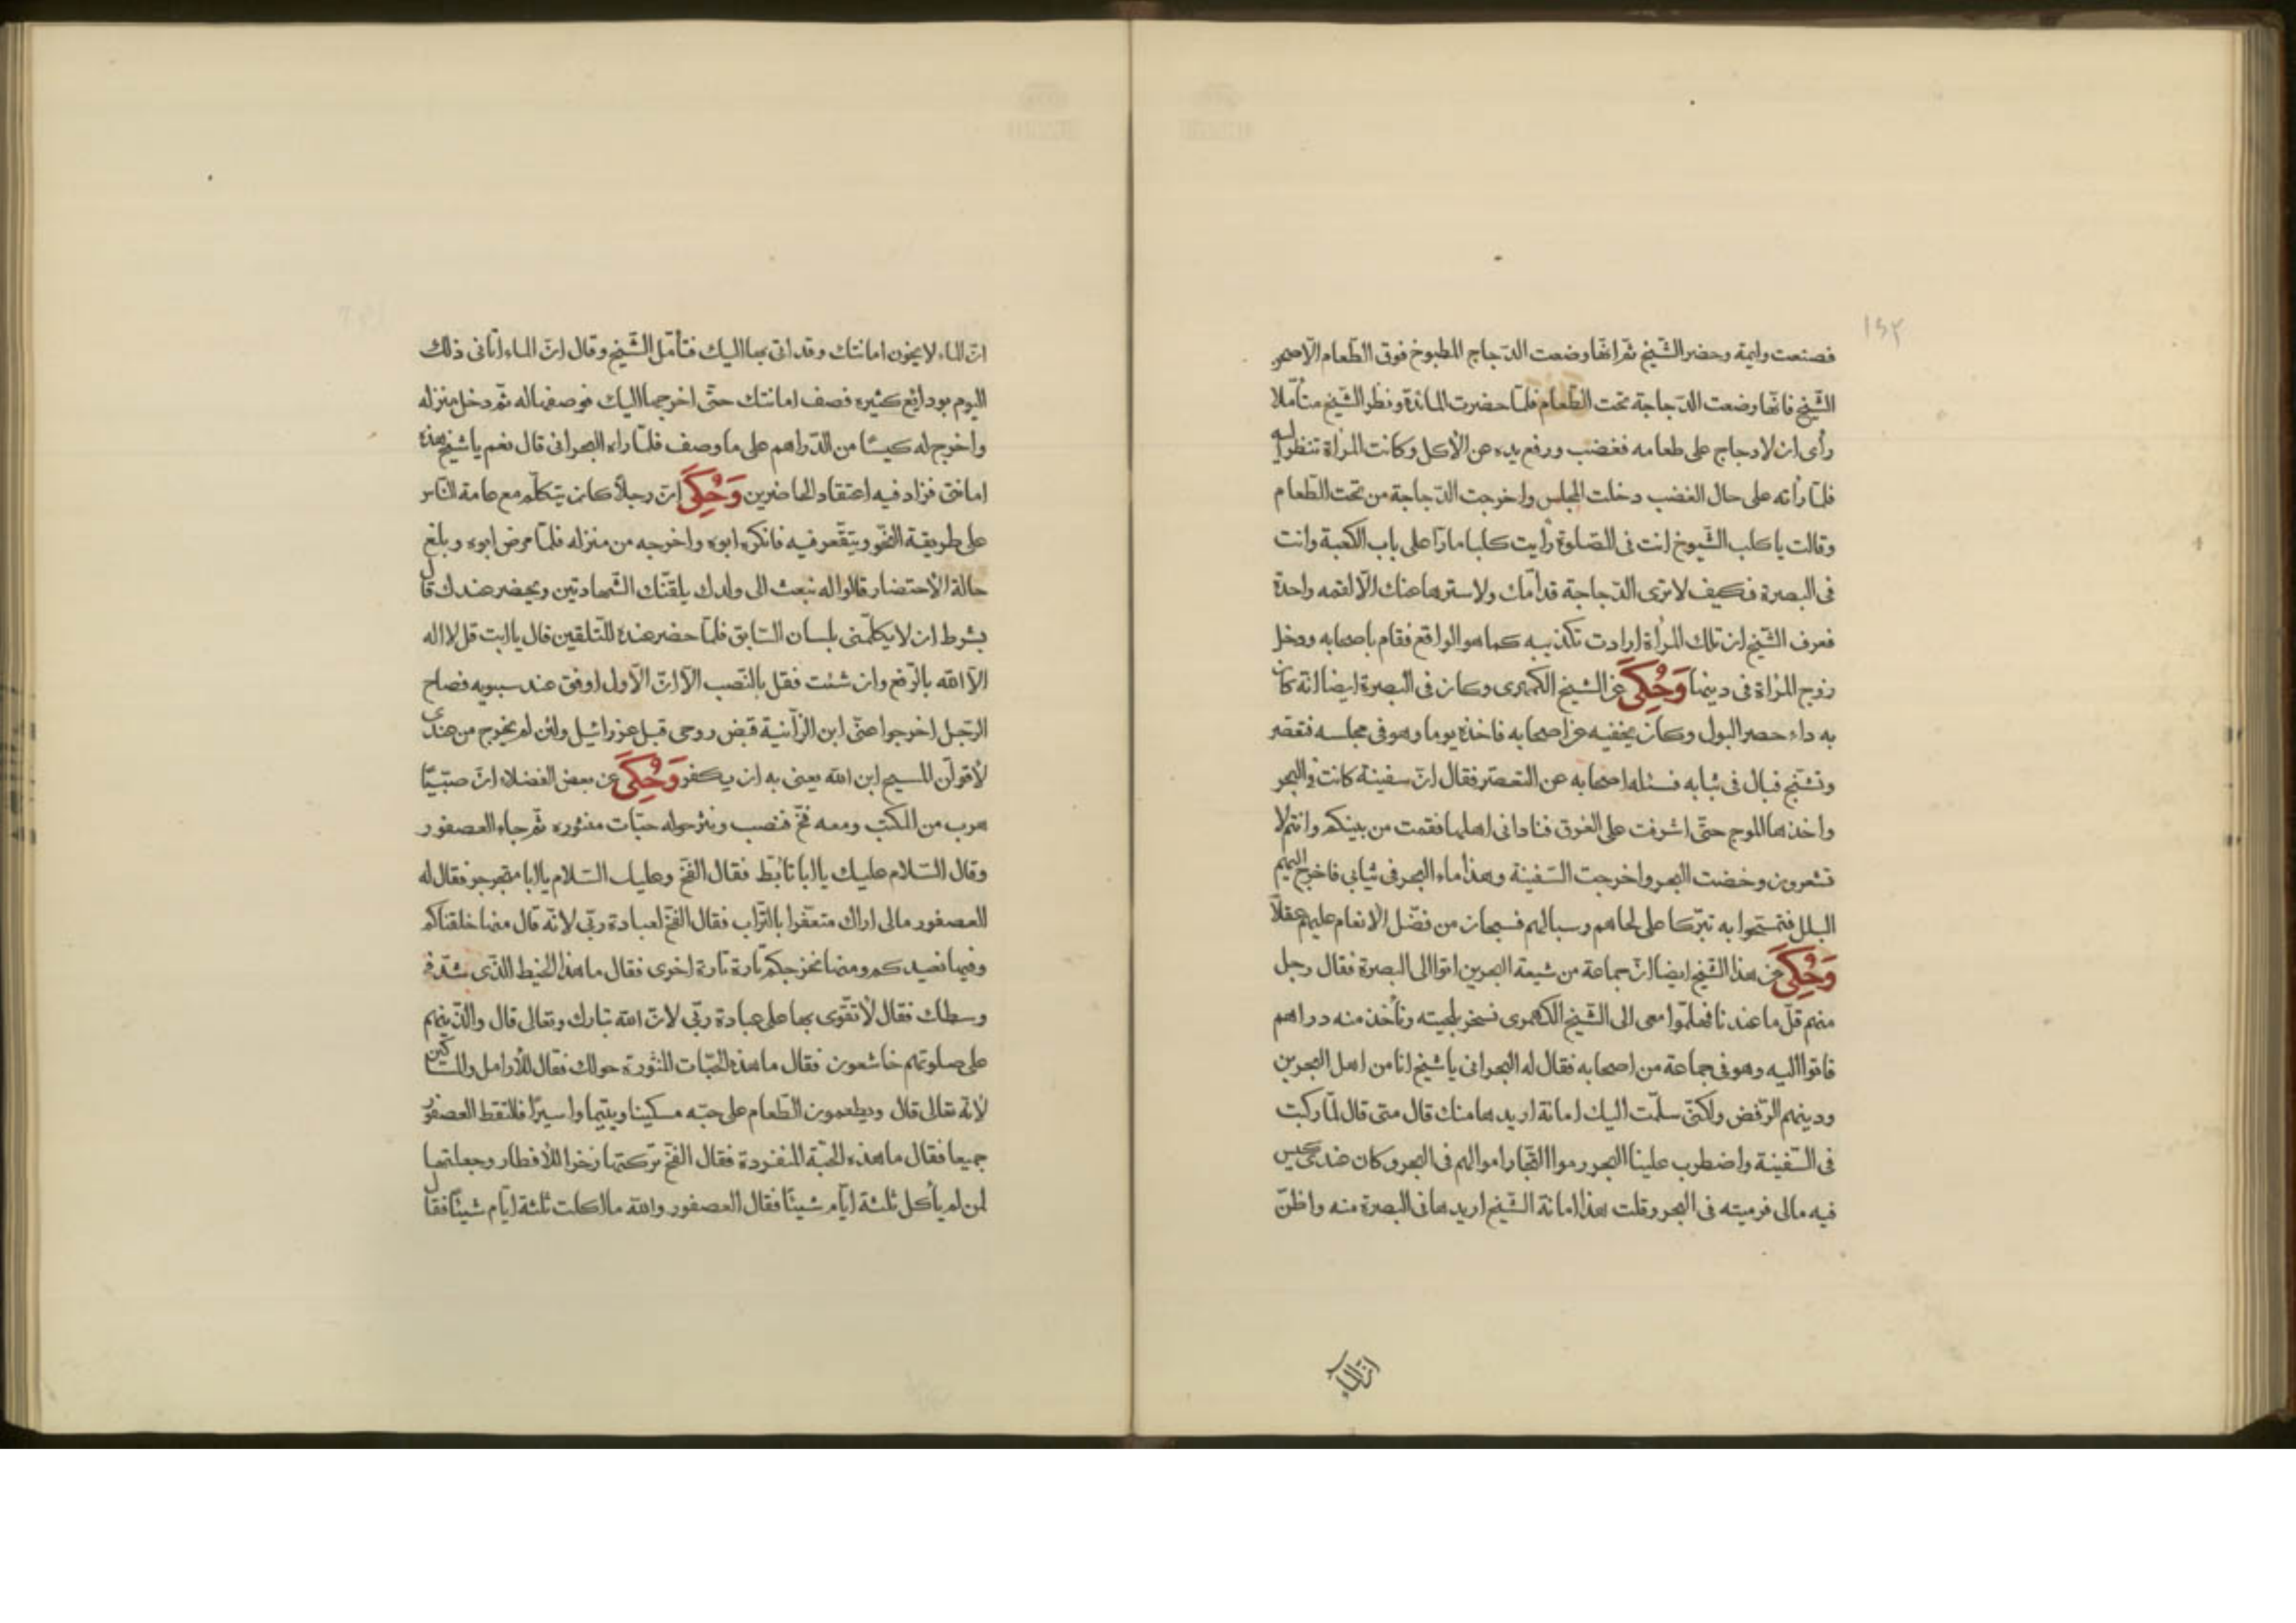 ١٥٢
فصنعت وليمة وحضر الشّيخ ثمّ انّها وضعت الدّجاج المطبوخ فوق الطّعام الّا صحن
الشّيخ فانّها وضعت الدّجاجة تحت الطّعام فلمّا حضرت المائدة ونظر الشّيخ متأمّلا
رأى ان لا دجاج على طعامه فغضب ورفع يده عن الأكل وكانت المرأة تنظر اليه
فلمّا رأته على حال الغضب دخلت المجلس واخرجت الدّجاجة من تحت الطّعام
وقالت يا كلب الشّيوخ انت فى الصّلوة رأيت كلبا مارّا على باب الكعبة وانت
فى البصرة فكيف لا ترى الدّجاجة قدّامك ولا سترها عنك الّا لقمه واحدة
فعرف الشّيخ ان تلك المرأة ارادت تكذيبه كما هو الواقع فقام باصحابه ودخل
زوج المرأة فى دينها وَحُكِىَ عن الشيخ الكهمرى وكان فى البصرة ايضا انّه كان
به داء حصر البول وكان يخفيه عن اصحابه فاخذه يوما وهو فى مجلسه فتعصّر
وتشنّج فبال فى ثيابه فسئله اصحابه عن التعصّر فقال انّ سفينة كانت فى البحر
واخذها الموج حتّى اشرفت على الغرق فنادانى اهلها فقمت من بينكم وانتم لا
تشعرون وخضت البحر واخرجت السّفينة وهذا ماء البحر فى ثيابي فاخرج اليهم
البلل فتمسّحوا به تبرّكا على لحاهم وسبالهم فسبحان من فضّل الأنعام عليهم عقلاً
وَحُكِىَ عن هذا الشّيخ ايضا انّ جماعة من شيعة البحرين اتوا الى البصرة فقال رجل
منهم قلّ ما عندنا فهلمّوا معى الى الشّيخ الكهمرى نسخر بلحيته ونأخذ منه دراهم
فاتوا اليه وهو فى جماعة من اصحابه فقال له البحرانى يا شيخ انا من اهل البحرين
ودينهم الرّفض ولكنّى سلّمت اليك امانة اريدها منك قال متى قال لمّا ركبت
فى السّفينة واضطرب علينا البحر رموا التّجار اموالهم فى البحر وكان عندى كيس
فيه مالى فرميته فى البحر وقلت هذا امانة الشّيخ اريدها فى البصرة منه واظنّ
انّ الماء
انّ الماء لا يخون امانتك وقد اتى بها اليك فتأمّل الشّيخ وقال انّ الماء اتانى ذلك
اليوم بودايع كثيره فصف امانتك حتّى اخرجها اليك فوصفها له ثمّ دخل منزله
واخرج له كيسًا من الدّراهم على ما وصف فلمّا راه البحرانى قال نعم يا شيخ هذه
امانتى فزاد فيه اعتقاد الحاضرين وَحُكِىَ انّ رجلاً كان يتكلّم مع عامة النّاس
على طريقة النّحو ويتقّعر فيه فانكره ابوه واخرجه من منزله فلمّا مرض ابوه وبلغ
حالة الأحتضار قالوا له نبعث الى ولدك يلقّنك الشّهادتين ويحضر عندك قال
بشرط ان لا يكلّمنى بلسان السّابق فلمّا حضر عنده للتّلقين قال يا ابت قل لا اله
الّا الله بالرّفع وان شئت فقل بالنّصب الّا انّ الأول اوفق عند سيبويه فصاح
الرّجل اخرجوا عنّى ابن الزّانية قبض روحى قبل عزرائيل ولئن لم يخرج من عندى
لأقولنّ المسيح ابن الله يعنى به ان يكفر وَحُكِىَ عن بعض الفضلاء انّ صبّيًا
هرب من المكتب ومعه فخّ فنصب ونثر حوله حبّات منثوره ثمّ جاء العصفور
وقال السّلام عليك يا ابا تأبّط فقال الفخّ وعليك السّلام يا ابا متجرجر فقال له
العصفور مالى اراك متعفّرا بالتّراب فقال الفخّ لعبادة ربّى لانّه قال منها خلقناكم
وفيها نعيدكم ومنها نخرجكم تارة تارة اخرى فقال ما هذا الخيط الّذى شدّ فى
وسطك فقال لأتقوّى بها على عبادة ربّى لانّ الله تبارك وتعالى قال والّذين هم
على صلوتهم خاشعون فقال ما هذه الحبّات المنثورة حولك فقال للأرامل والمساكين
لأنّه تعالى قال ويطعمون الطّعام على حبّه مسكينا ويتيما واسيرًا فالتقط العصفور
جميعا فقال ما هذه الحبّة المنفردة فقال الفخّ تركتها زخرا للأفطار وجعلتها
لمن لم يأكل ثلثة ايّام شيئًا فقال العصفور والله ما اكلت ثلثة ايّام شيئًا فقال